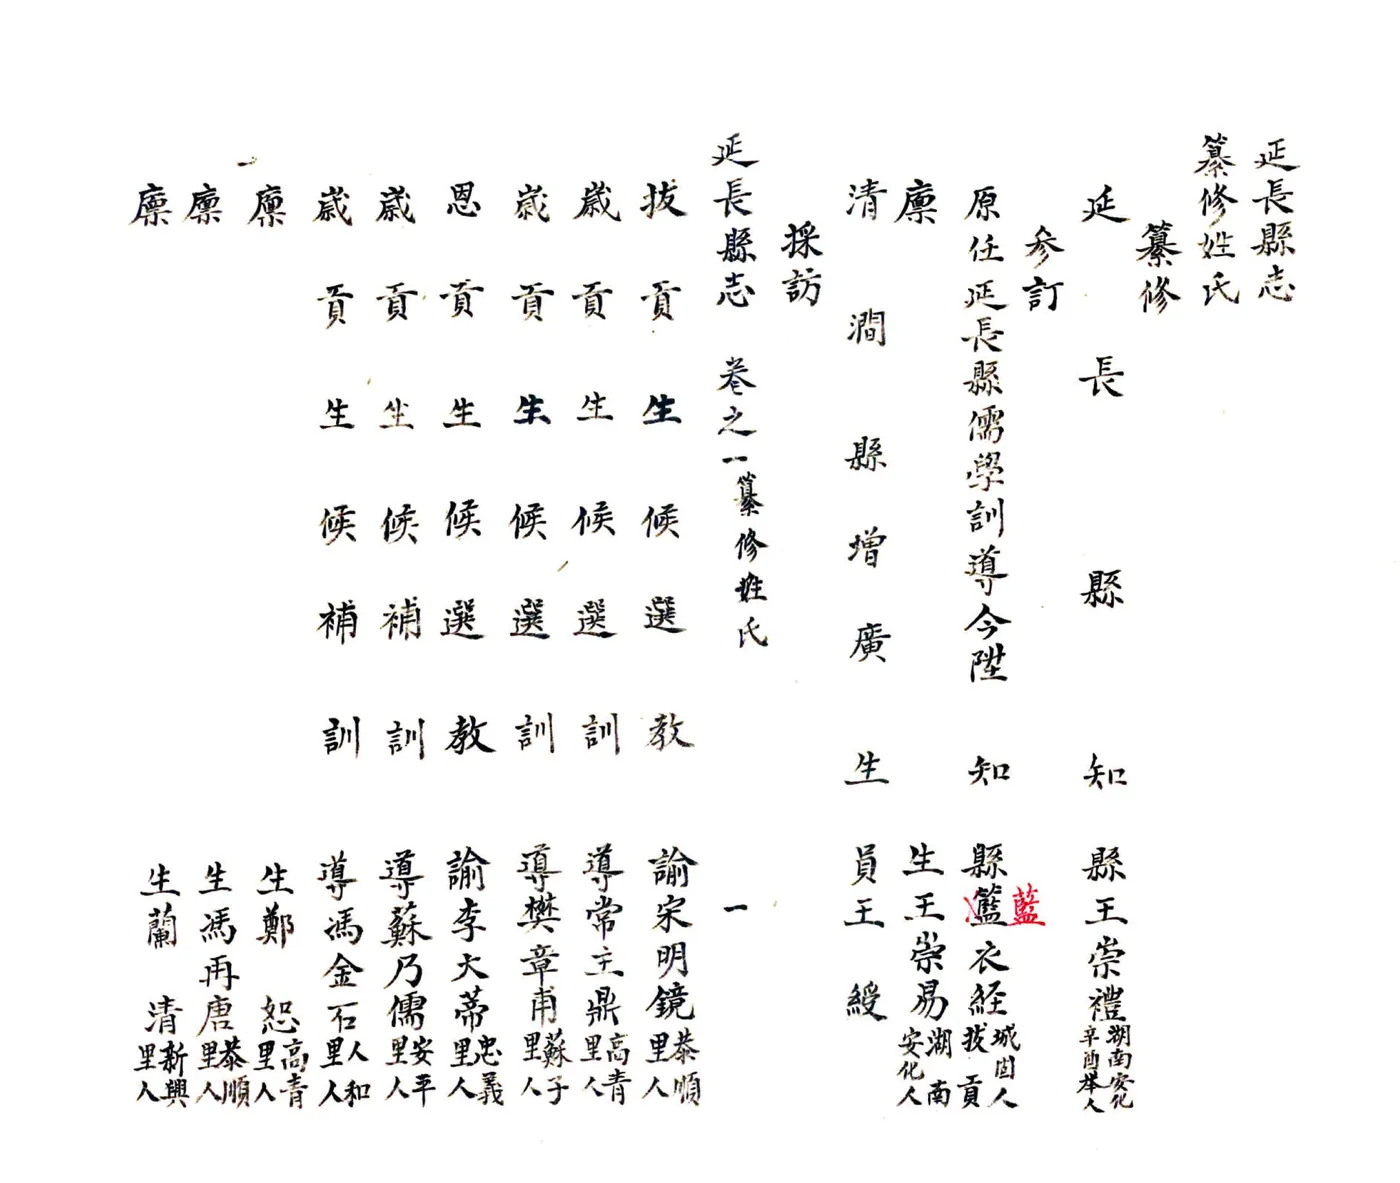 延長縣志
纂修姓氏
纂修
延長縣知縣王崇禮湖南安化辛酉舉人
參訂
原任延長縣儒學訓導今陞知縣籃衣経城固人拔貢
藍
廩生王崇易湖南安化人
清澗縣增廣生員王綬
採訪
延長縣志 卷之一 纂修姓氏 一
拔貢生候選教諭宋明鏡泰順里人
歲貢生候選訓導常主鼎高青里人
歲貢生候選訓導樊章甫蘇子里人
恩貢生候選教諭李大蒂忠義里人
歲貢生候補訓導蘇乃儒安平里人
歲貢生候補訓導馮金石人和里人
廩生鄭恕高青里人
廩生馮再唐泰順里人
廩生蘭清新興里人